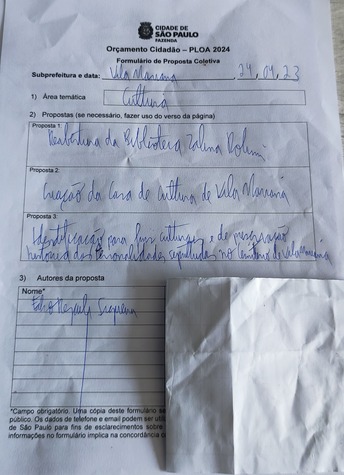 CIDADE DE
SÃO PAULO
FAZENDA
Orçamento Cidadão – PLOA 2024
Formulário de Proposta Coletiva
Subprefeitura e data: Vila Mariana, 24, 04, 23
1) Área temática Cultura
2) Propostas (se necessário, fazer uso do verso da página)
Proposta 1:
Reabertura da Biblioteca Zalina Rolim
Proposta 2:
Creação da Casa de Cultura de Vila Mariana
Proposta 3:
Identificação para fins culturais e de preservação
historica das personalidades sepultadas no Cemiterio de Vila Mariana
3) Autores da proposta
Nome*
*Campo obrigatório. Uma cópia deste formulário se
público. Os dados de telefone e email podem ser uti
de São Paulo para fins de esclarecimentos sobre
informações no formulário implica na concordância c